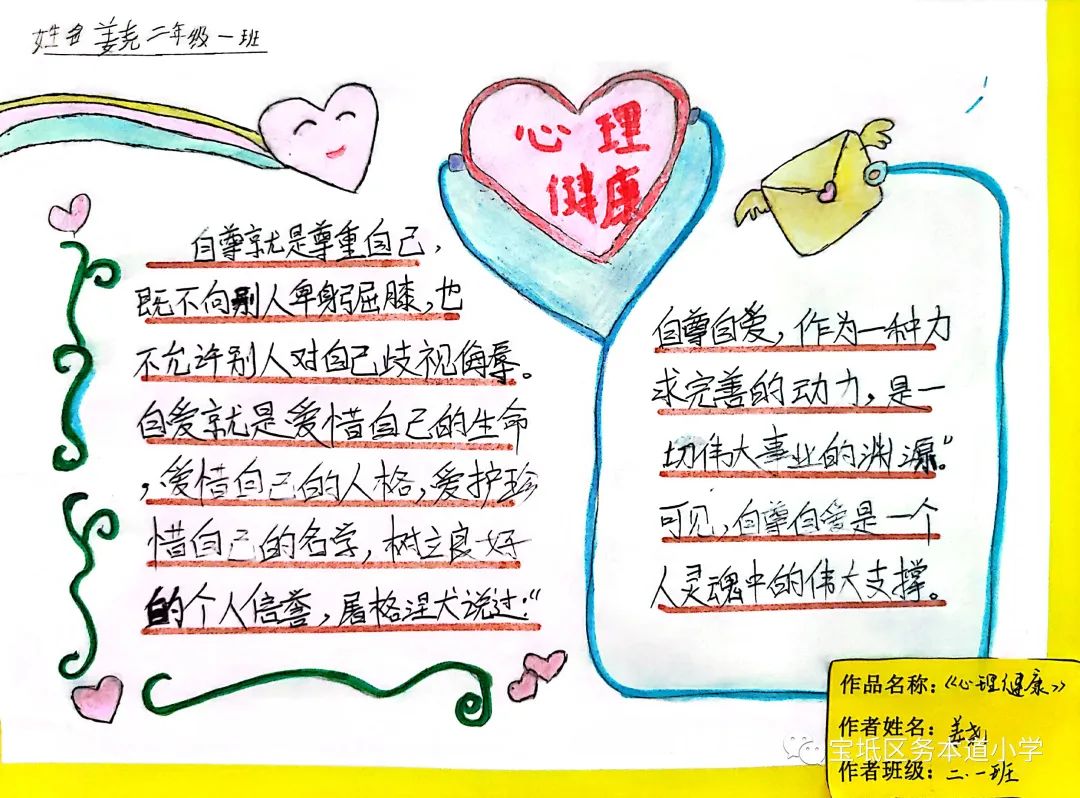 姓名 姜尧 二年级一班
心理
健康
自尊就是尊重自己,
既不向别人卑躬屈膝,也
不允许别人对自己歧视侮辱。
自爱就是爱惜自己的生命
,爱惜自己的人格,爱护珍
惜自己的名学,树立良好
的个人信誉,屠格涅犬说过:“
自尊自爱,作为一种力
求完善的动力,是一
切伟大事业的渊源”
可见,自尊自爱是一个
人灵魂中的伟大支撑。
作品名称:《心理健康》
作者姓名:姜尧
作者班级:二.一班
宝坻区务本道小学